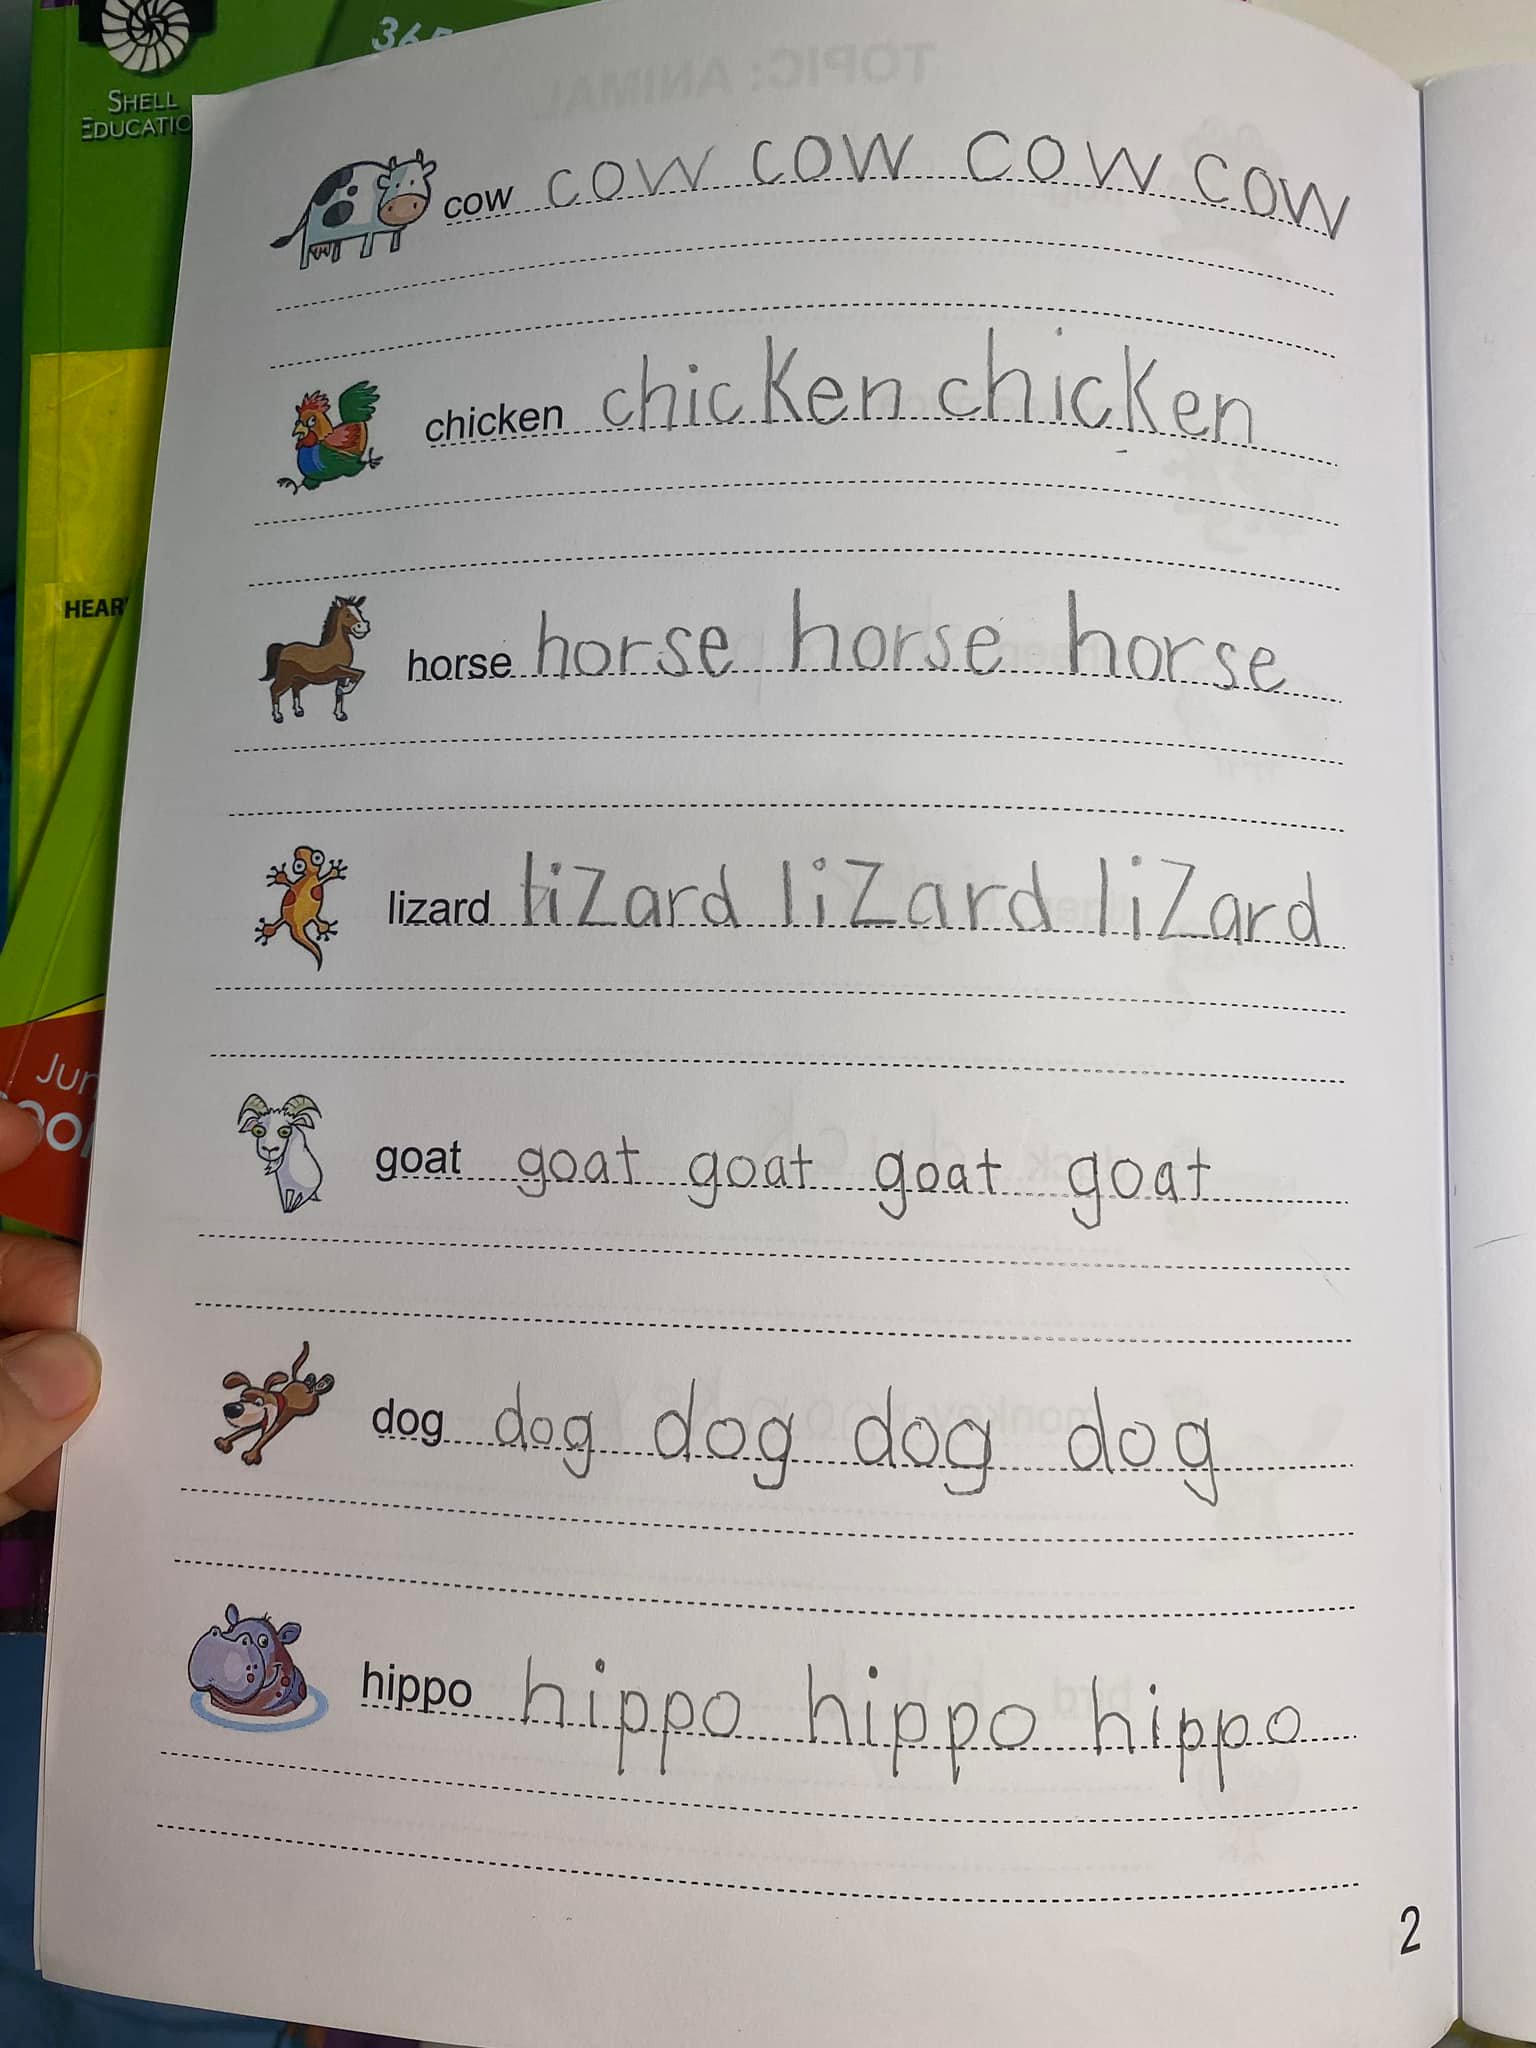 365
SHELL
EDUCATIO
TOPIC: ANIMAL
cow cow cow cow cow
chicken chicken chicken
HEAR
horse horse horse horse
lizard lizard lizard lizard
Jun
goat goat goat goat goat
dog dog dog dog dog
hippo hippo hippo hippo
2